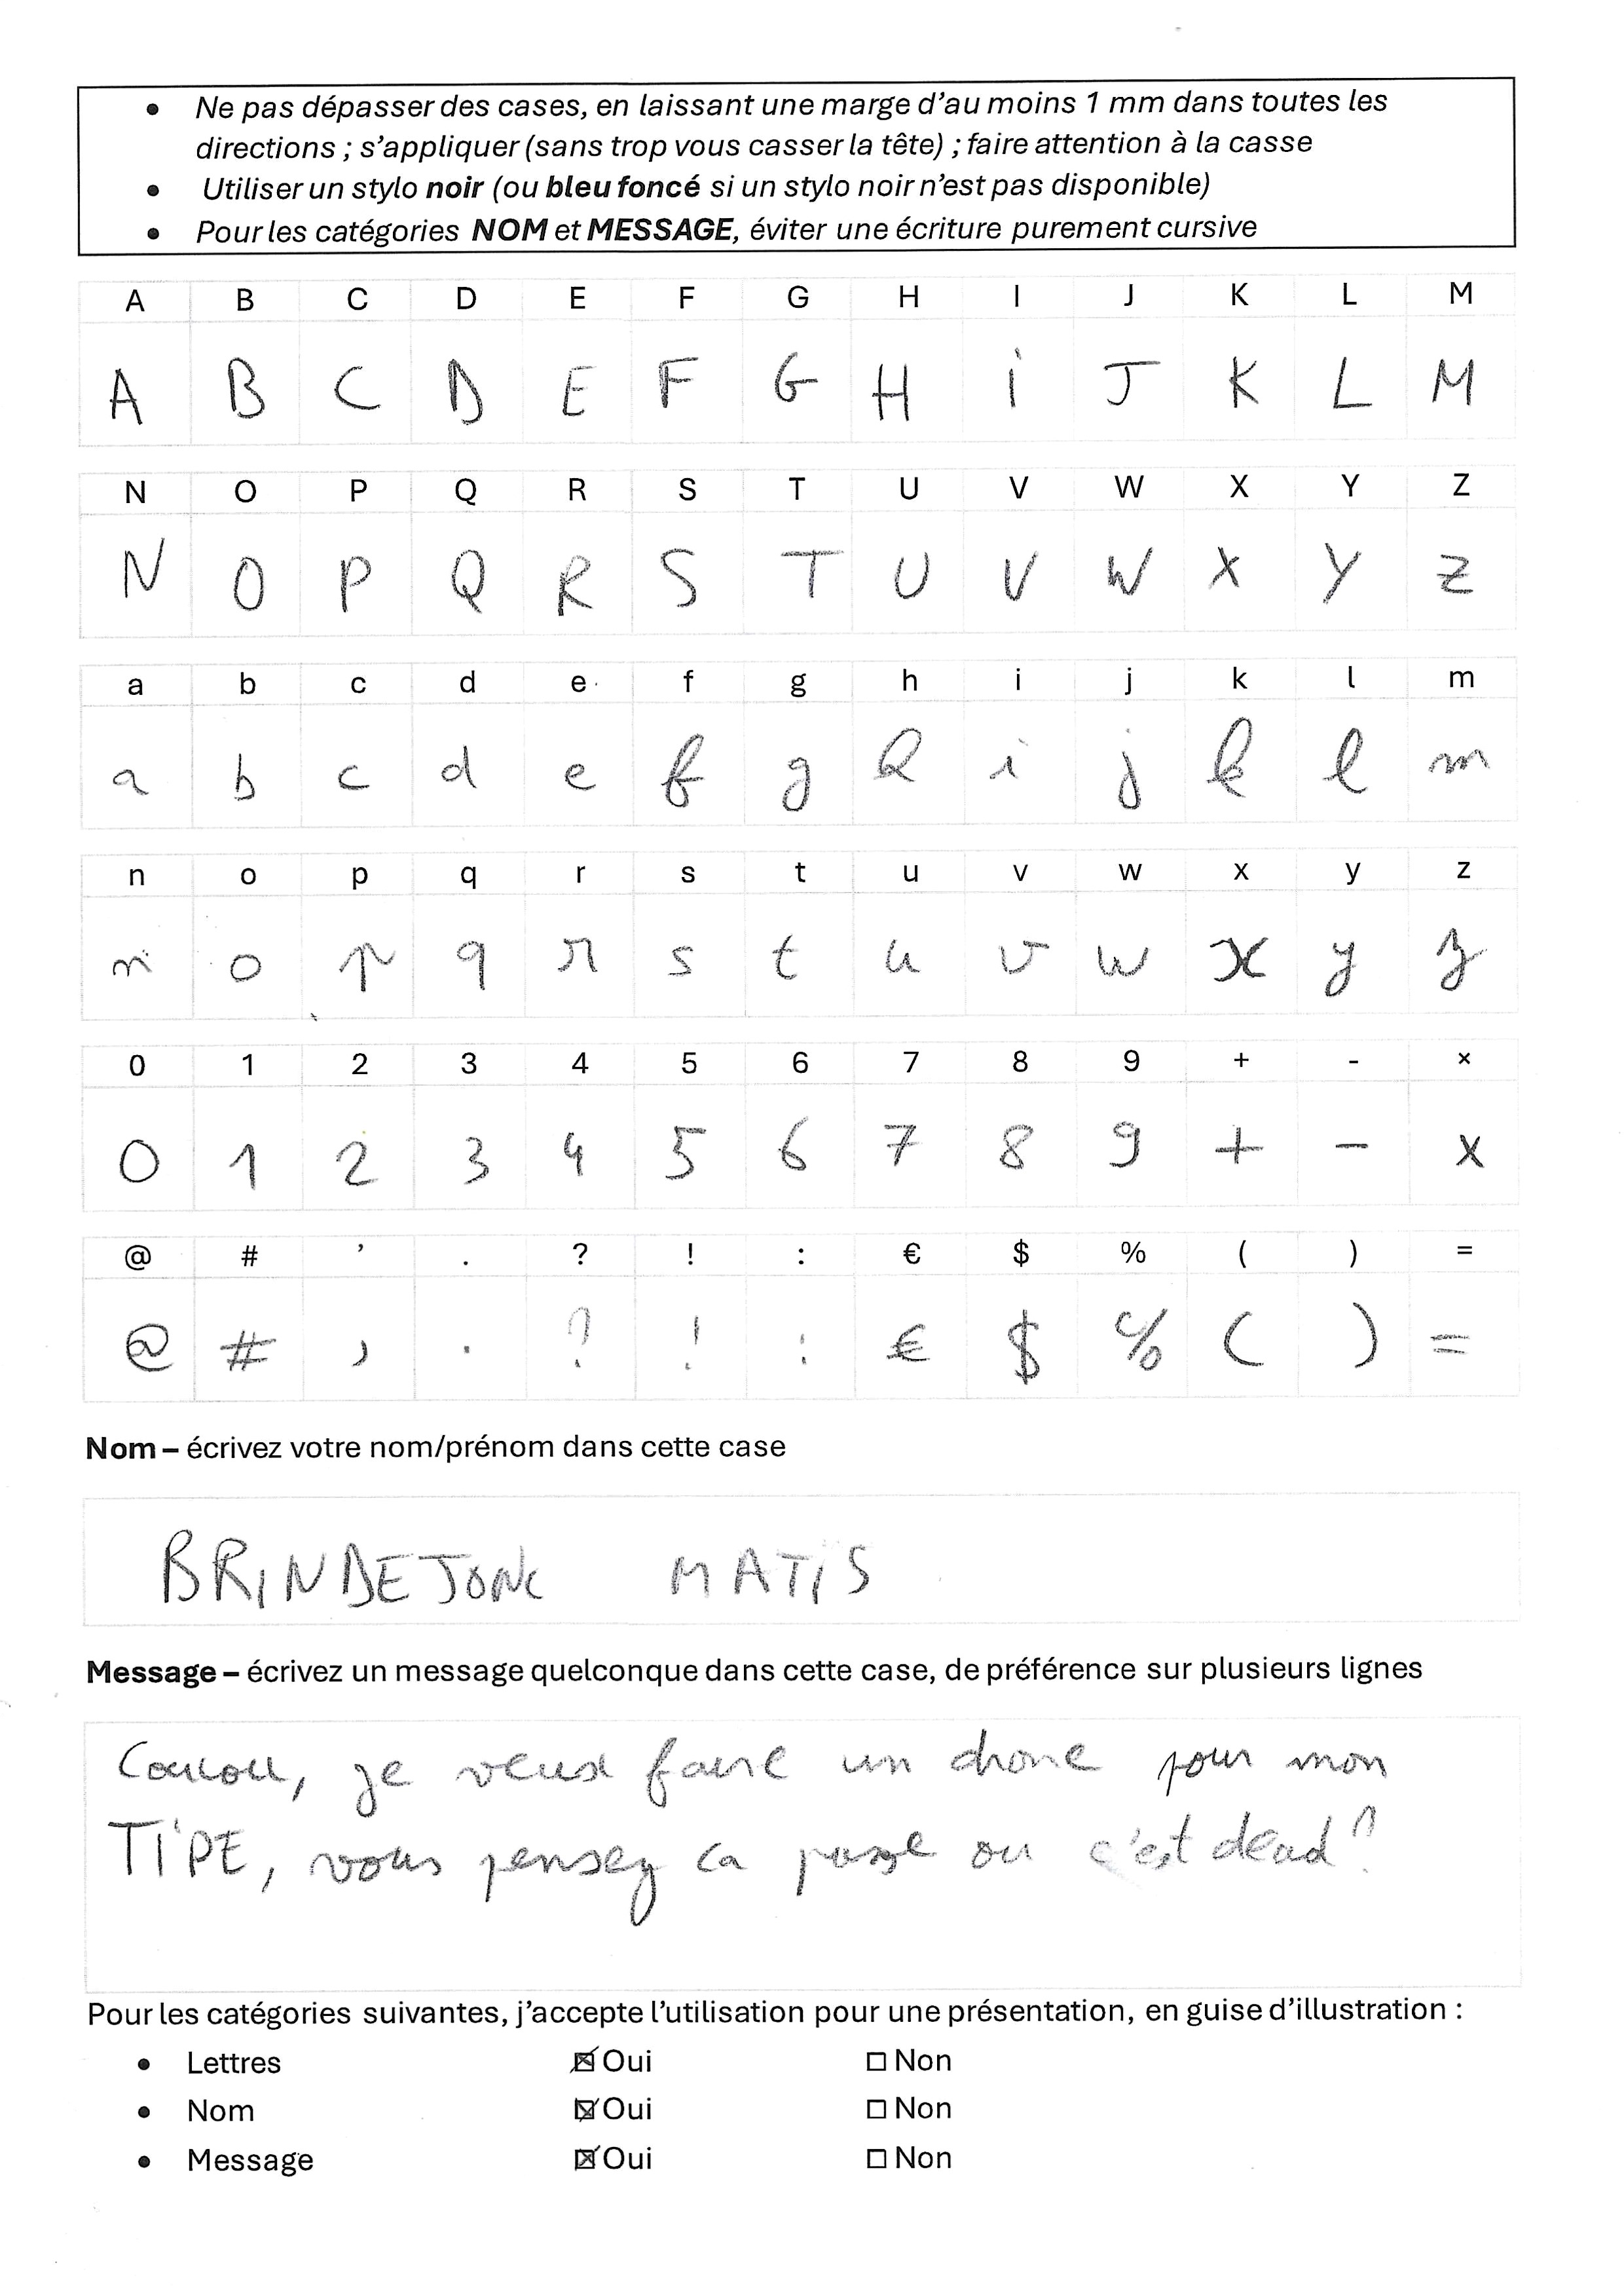 • Ne pas dépasser des cases, en laissant une marge d'au moins 1 mm dans toutes les
directions ; s'appliquer (sans trop vous casser la tête) ; faire attention à la casse
• Utiliser un stylo noir (ou bleu foncé si un stylo noir n'est pas disponible)
• Pour les catégories NOM et MESSAGE, éviter une écriture purement cursive
A B C D E F G H I J K L M
A B C D E F G H i J K L M
N O P Q R S T U V W X Y Z
N O P Q R S T U V W X Y Z
a b c d e f g h i j k l m
a b c d e f g h i j k l m
n o p q r s t u v w x y z
n o p q r s t u v w x y z
0 1 2 3 4 5 6 7 8 9 + - ×
0 1 2 3 4 5 6 7 8 9 + - ×
@ # ’ . ? ! : € $ % ( ) =
@ # , . ? ! : € $ % ( ) =
Nom – écrivez votre nom/prénom dans cette case
BRiNDEJONC MATiS
Message – écrivez un message quelconque dans cette case, de préférence sur plusieurs lignes
Coucou, je veux faire un drone pour mon
TiPE, vous pensez ca passe ou c'est dead?
Pour les catégories suivantes, j'accepte l'utilisation pour une présentation, en guise d'illustration :
• Lettres ☒ Oui ☐ Non
• Nom ☒ Oui ☐ Non
• Message ☒ Oui ☐ Non